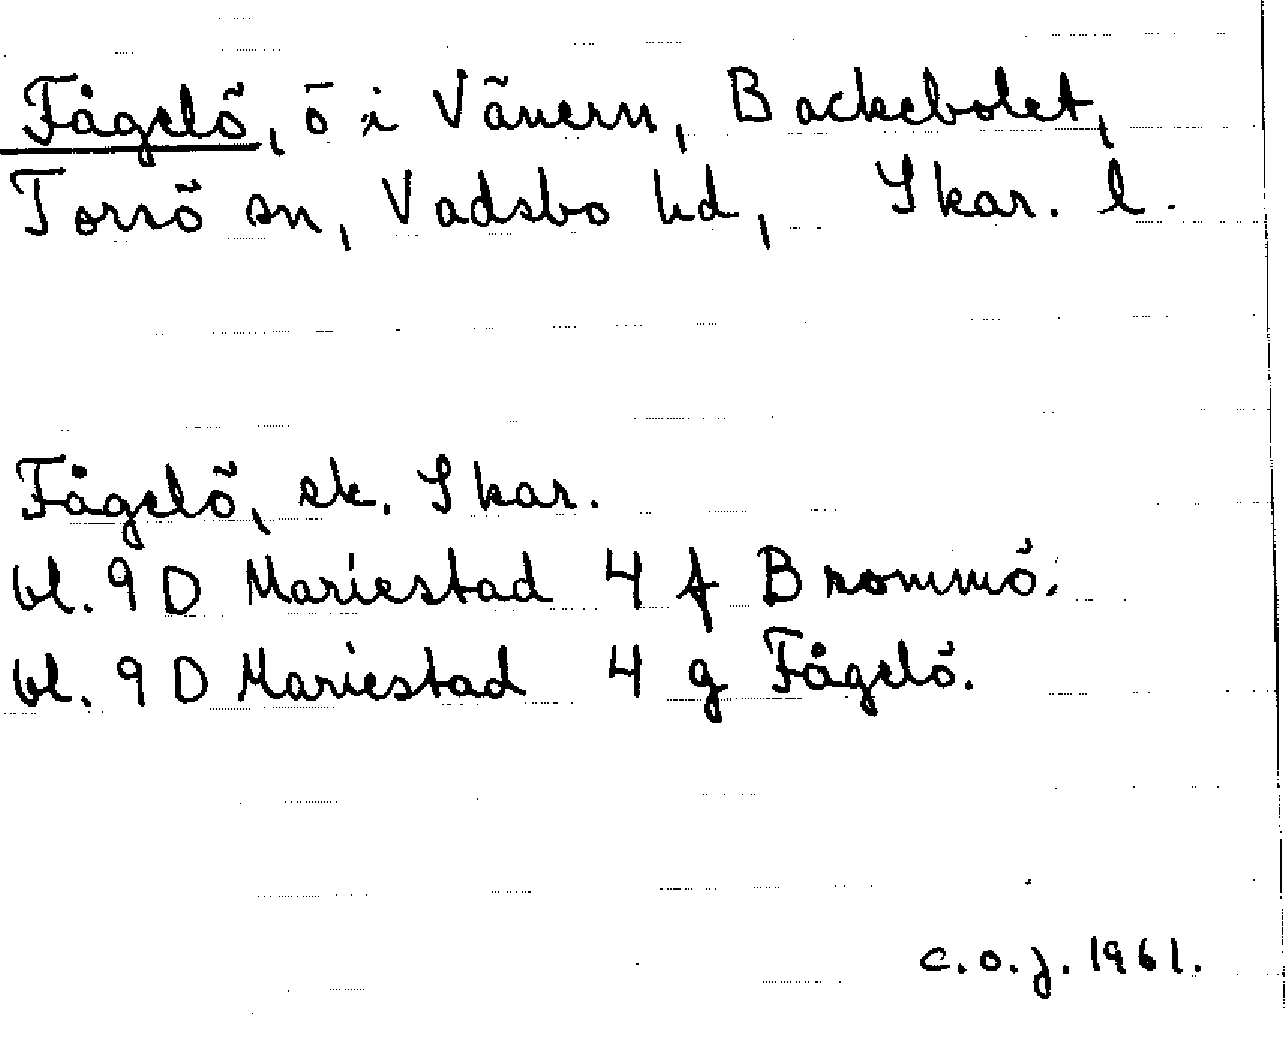 Fågelö, ö i Vänern, Backebolet,
Torsö sn, Vadsbo hd, Skar. l.
Fågelö, ek. Skar.
bl. 9 D Mariestad 4 f Brommö.
bl. 9 D Mariestad 4 g Fågelö.
c.o.j. 1961.